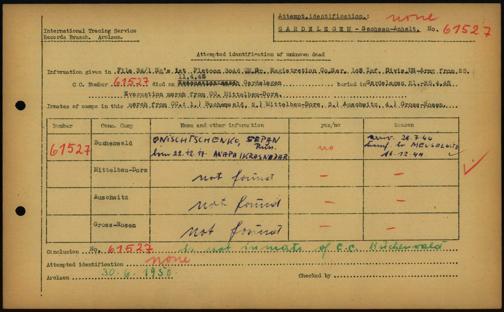 Attempt.identification.: none
International Tracing Service
Records Branch. Arolsen.
GARDELEGEN - Sachsen-Anhalt. No. 61527
Attempted identification of unknown dead
Information given in File Sa/1 No's 1st Platoon Head UN.Gr. Registration Co.Ser. 102 Inf. Divis.US-Army from 25.
11.4.45
C.C. Number 61527 died on Gardelegen buried in Gardelegen 21.-25.4.45
Evacuation march from CC. Mittelbau-Dora.
Inmates of camps in this march from CC: 1.) Buchenwald, 2.) Mittelbau-Dora, 3.) Auschwitz, 4.) Gross-Rosen.
Number Conc. Camp Name and other information yes/no reason
61527 Buchenwald ONISCHTSCHENKO, STEPAN no
born 22.12.17 ANAPA/KRASNODAR
Mittelbau-Dora not found - -
Auschwitz not found - -
Gross-Rosen not found - -
Conclusion No. 61527 is not inmate of C.C. Buchenwald
Attempted identification none
Arolsen 30.6.1950 Checked by